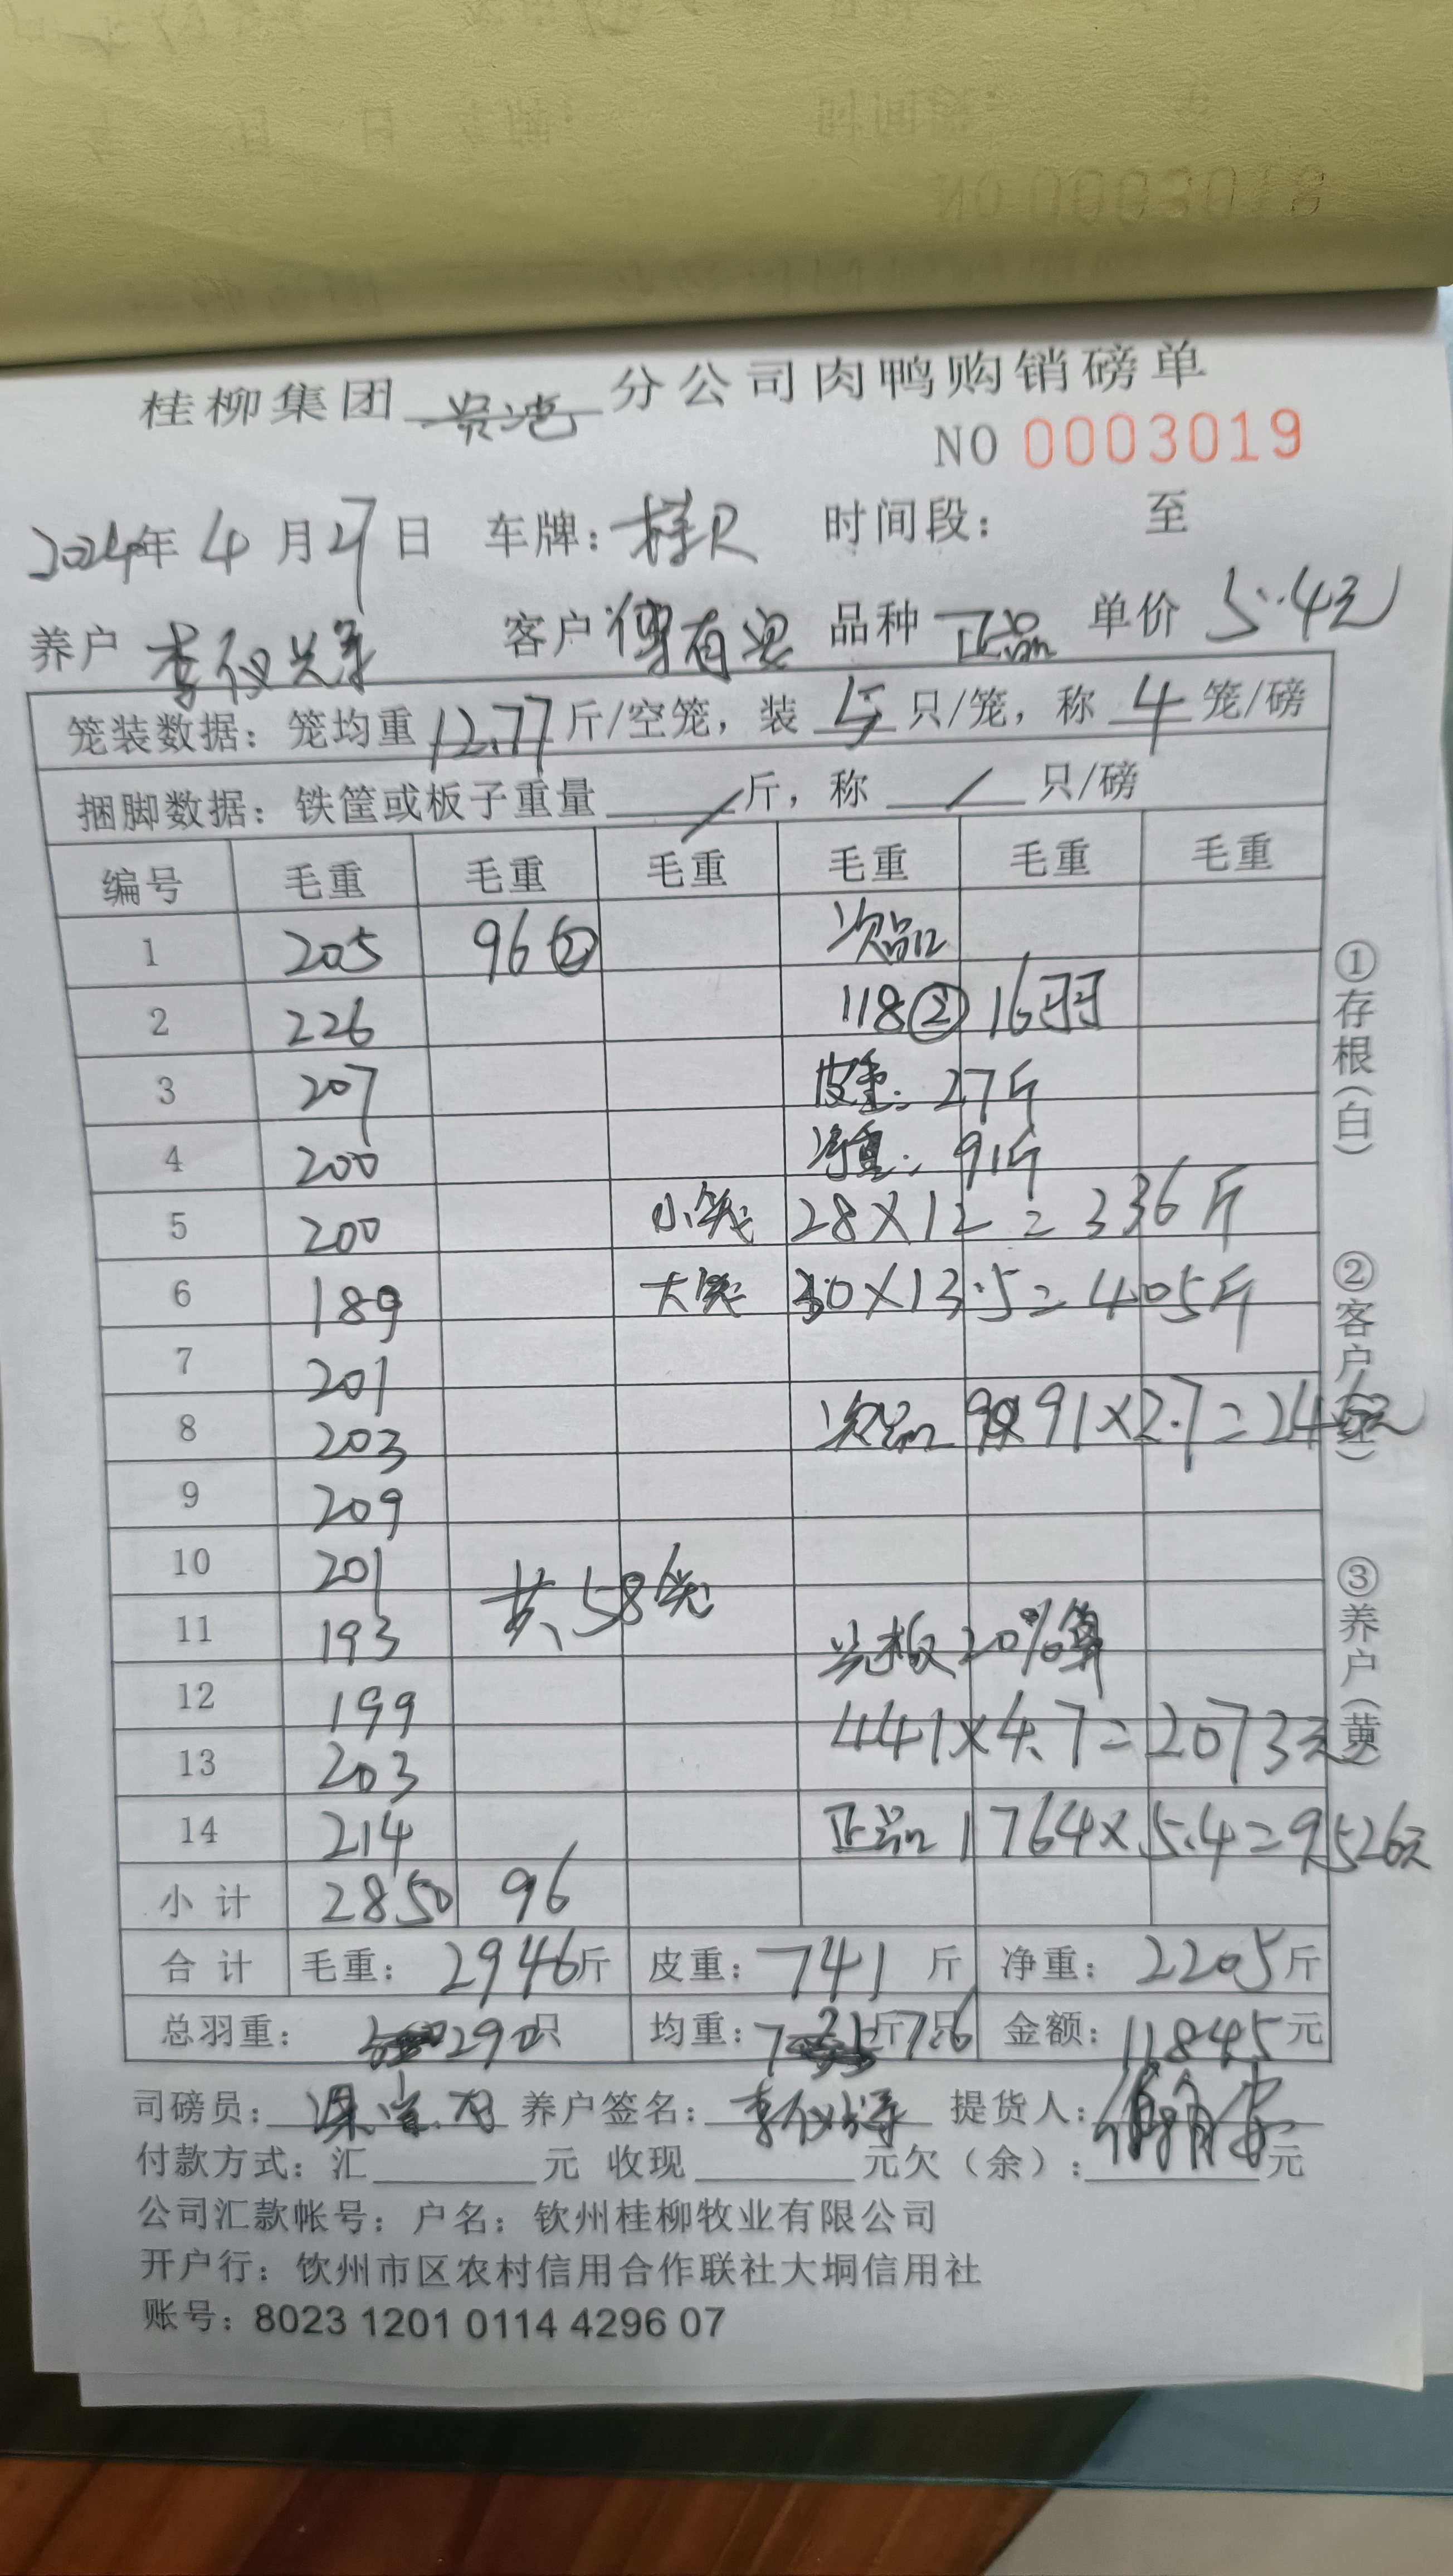 NO 0003018
桂柳集团 贵港 分公司肉鸭购销磅单
NO 0003019
2024年 4 月 27 日 车牌: 桂R 时间段: 至
养户 李仪 客户 有 品种 正品 单价 5.4元
笼装数据: 笼均重 12.77 斤/空笼, 装 5 只/笼, 称 4 笼/磅
捆脚数据: 铁筐或板子重量 / 斤, 称 / 只/磅
编号 毛重 毛重 毛重 毛重 毛重 毛重
1 205 96② 次品
2 226 118② 16羽
3 207 皮重: 27斤
4 200 净重: 91斤
5 200 小笼 28×12=336斤
6 189 大笼 30×13.5=405斤
7 201
8 203 次品 91×2.7=246元
9 209
10 201
共58笼
11 193 光板20%算
12 199 441×4.7=2073元
13 203
14 214 正品 1764×5.4=9526元
小计 2850 96
合计 毛重: 2946斤 皮重: 741 斤 净重: 2205斤
总羽重: 290只 均重: 7.6 斤/只 金额: 11845元
司磅员: 养户签名: 李仪 提货人:
付款方式: 汇 元 收现 元欠(余): 元
公司汇款帐号: 户名: 钦州桂柳牧业有限公司
开户行: 钦州市区农村信用合作联社大垌信用社
账号: 8023 1201 0114 4296 07
①存根(白)
②客户(红)
③养户(黄)